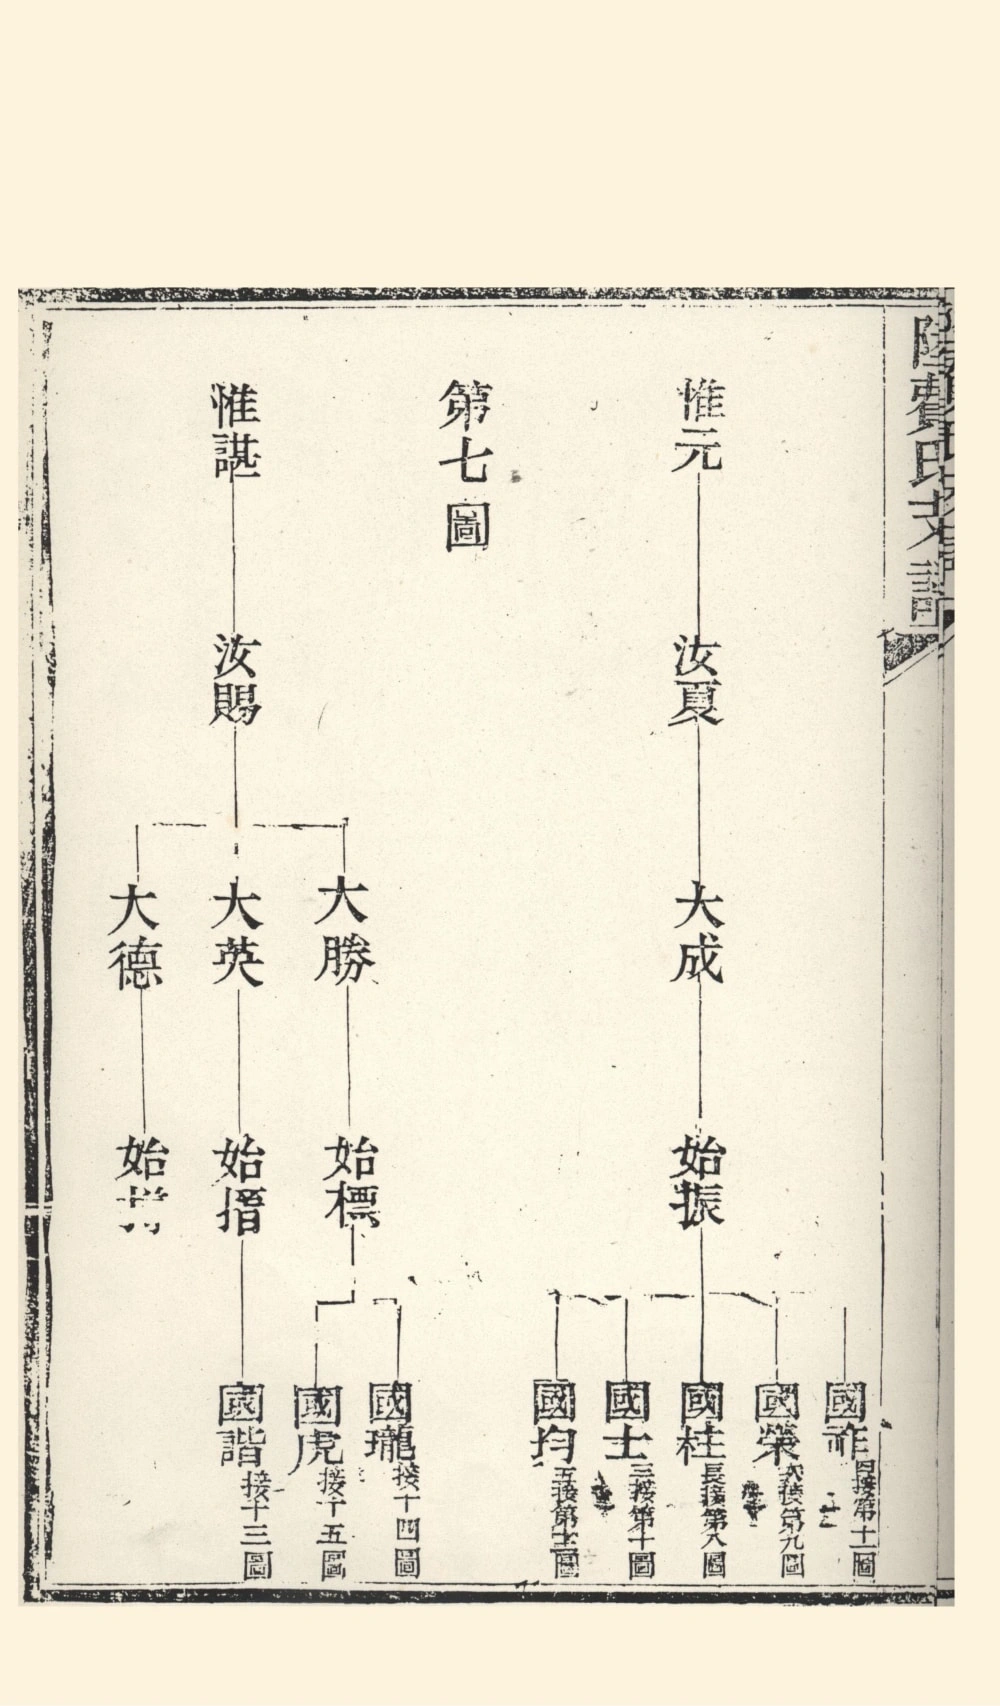 陵費氏支譜
惟元
汝夏
大成
始振
國祚 四接第十一圖
國榮 次接第九圖
國柱 長接第八圖
國士 三接第十圖
國均 五接第十二圖
第七圖
惟諶
汝賜
大勝
大英
大德
始標
始搢
始
國瓏 接十四圖
國虎 接十五圖
國諧 接十三圖